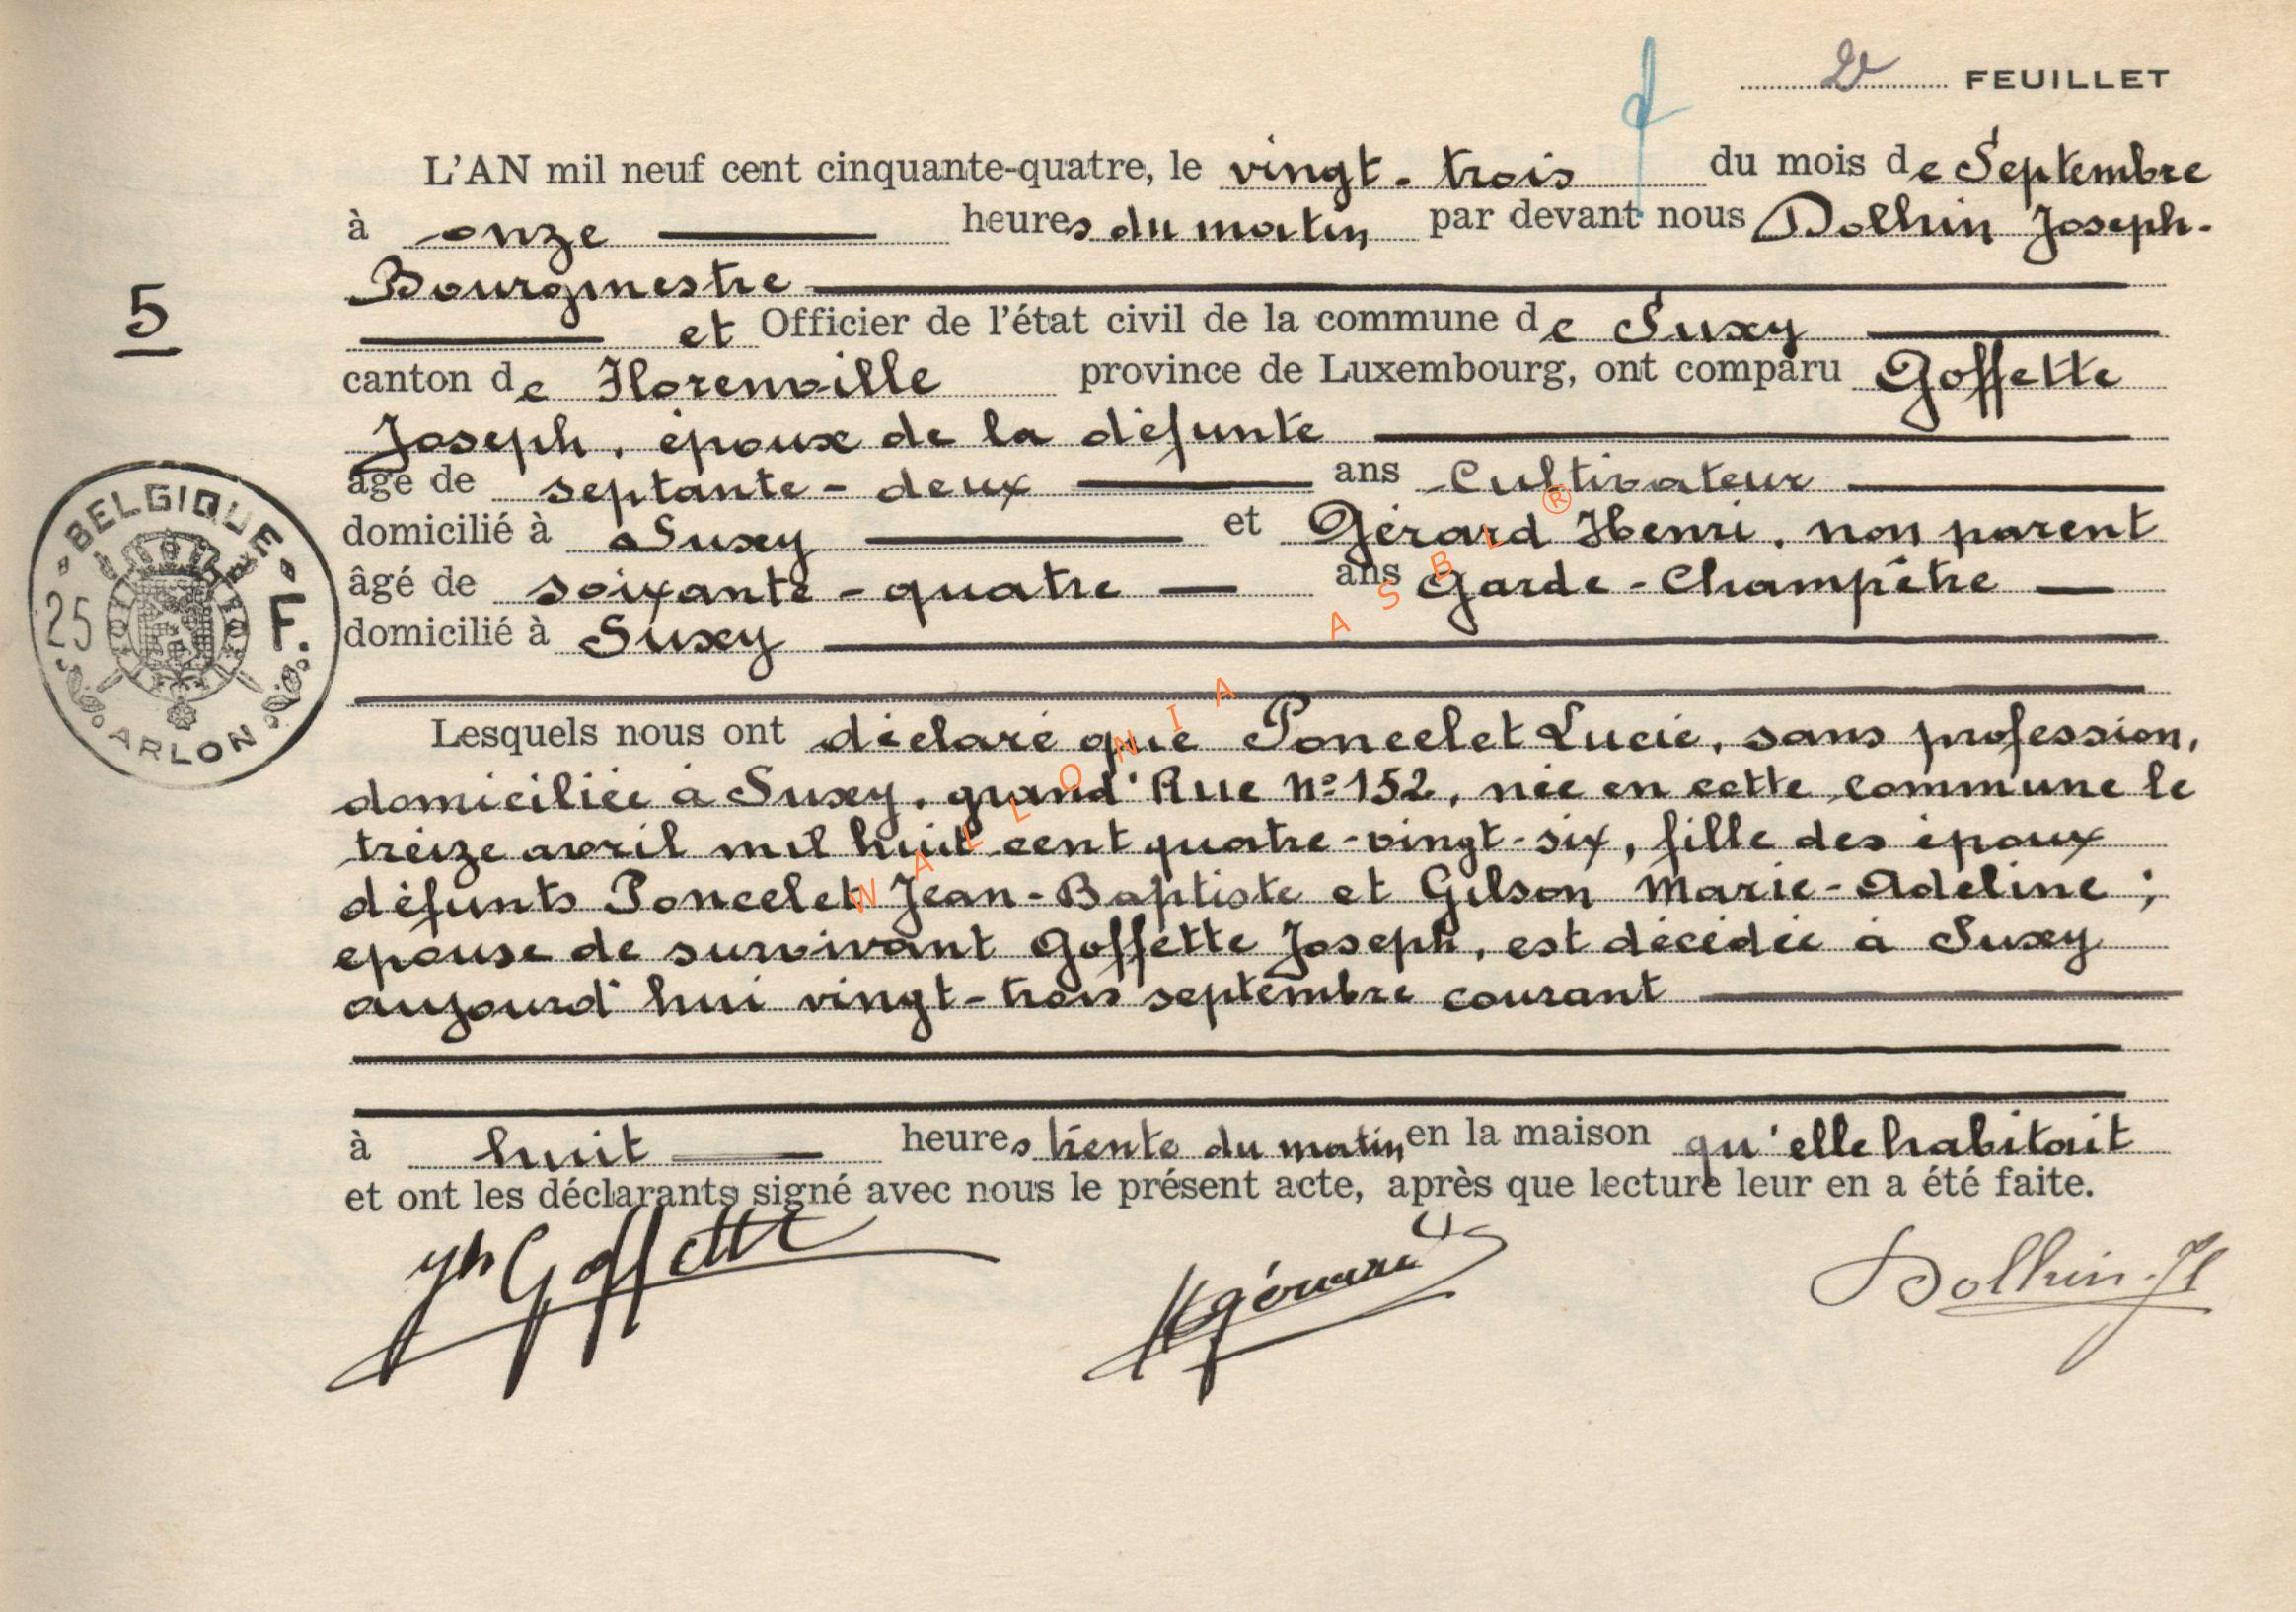 2e FEUILLET
L'AN mil neuf cent cinquante-quatre, le vingt-trois du mois de Septembre
à onze heures du matin par devant nous Dolhin Joseph.
Bourgmestre
et Officier de l'état civil de la commune de Suxy
canton de Florenville province de Luxembourg, ont comparu Goffette
Joseph, époux de la défunte
âgé de septante-deux ans Cultivateur
domicilié à Suxy et Gérard Henri, non parent
âgé de soixante-quatre ans Garde-Champêtre
domicilié à Suxy
5
BELGIQUE
25 F.
ARLON
Lesquels nous ont déclaré que Poncelet Lucie, sans profession,
domiciliée à Suxy, grand'Rue Nº 152, née en cette commune le
treize avril mil huit cent quatre-vingt-six, fille des époux
défunts Poncelet Jean-Baptiste et Gilson Marie-Adeline ;
épouse de survivant Goffette Joseph, est décédée à Suxy
aujourd'hui vingt-trois septembre courant
à huit heures trente du matin en la maison qu'elle habitait
et ont les déclarants signé avec nous le présent acte, après que lecture leur en a été faite.
Jh Goffette HGérard Dolhin Jh
WALLONIA ASBL ®